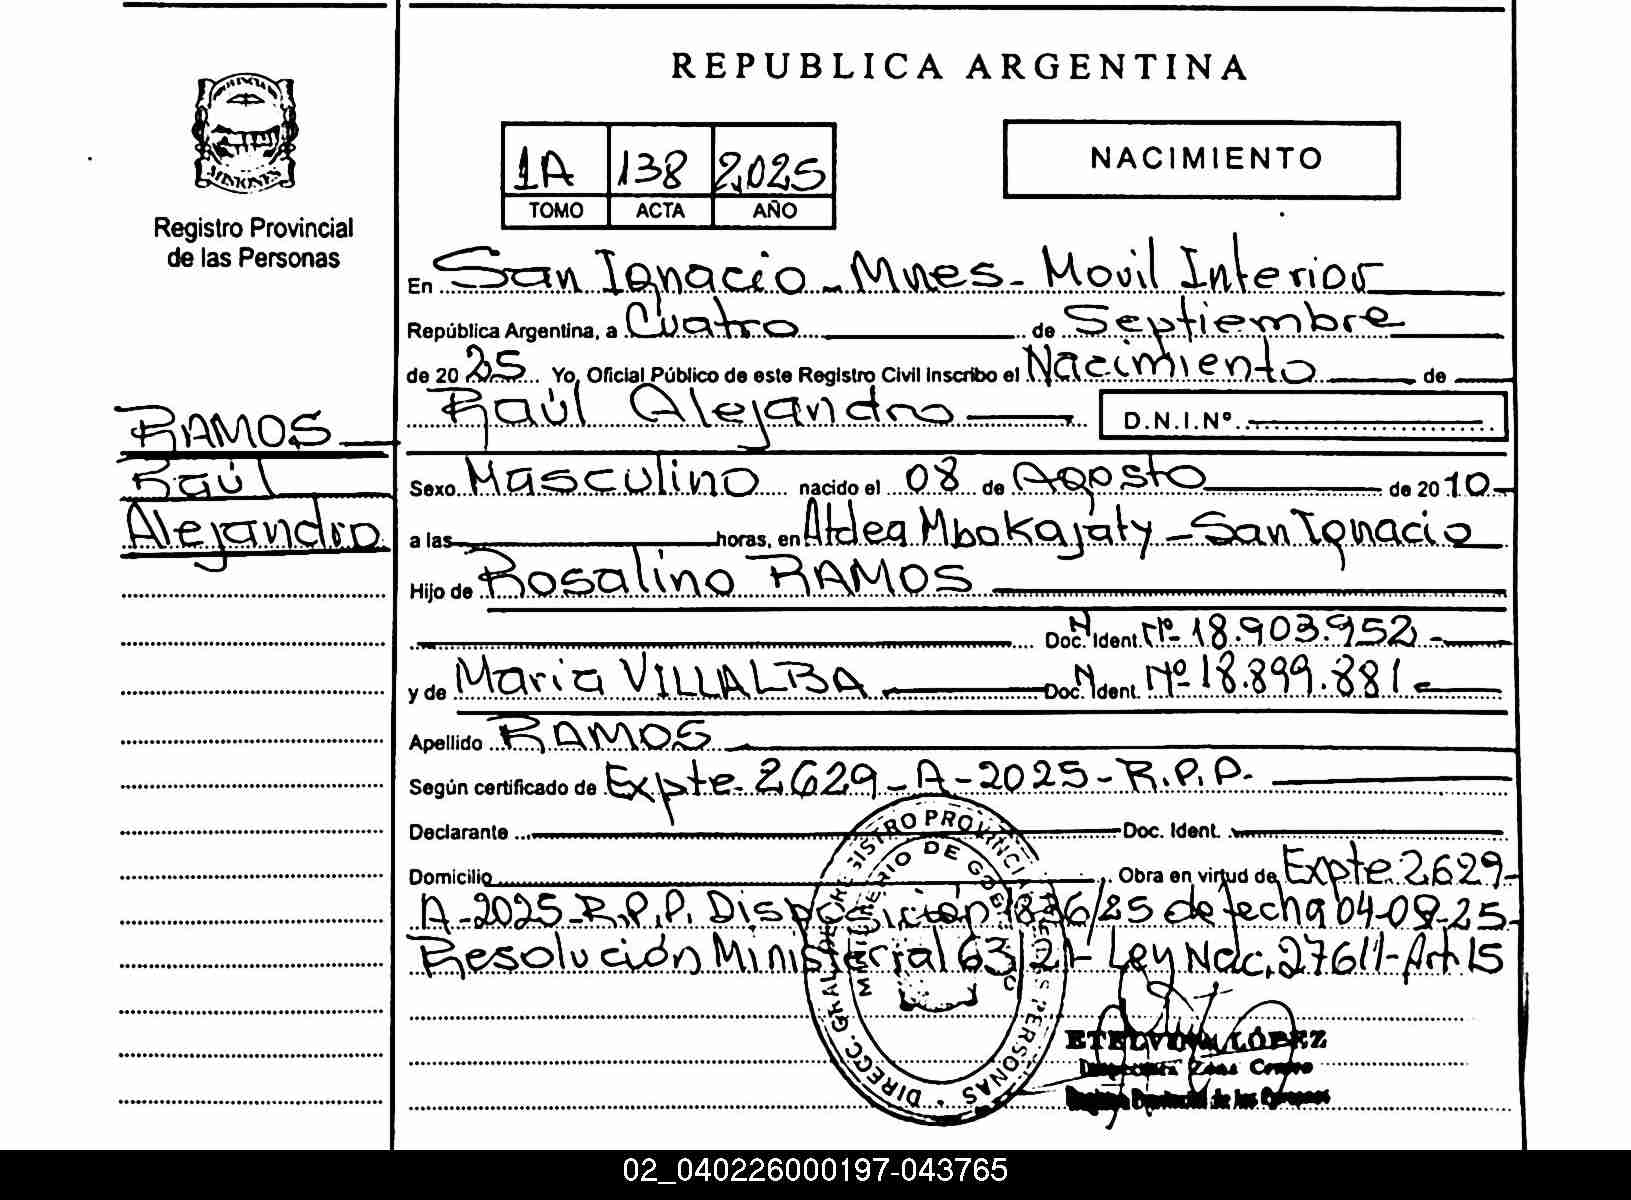 REPUBLICA ARGENTINA
PROVINCIA DE
MISIONES
Registro Provincial
de las Personas
1A 138 2.025
TOMO ACTA AÑO
NACIMIENTO
En San Ignacio - Mnes - Movil Interior
República Argentina, a Cuatro de Septiembre
de 20 25 Yo, Oficial Público de este Registro Civil Inscribo el Nacimiento de
Raúl Alejandro D.N.I.Nº
RAMOS
Raúl
Alejandro
Sexo Masculino nacido el 08 de Agosto de 2010-
a las horas, en Aldea Mbokajaty - San Ignacio
Hijo de Rosalino RAMOS
Doc. N Ident. Nº 18.903.952 -
y de Maria VILLALBA Doc. N Ident. Nº 18.899.881 -
Apellido RAMOS
Según certificado de Expte. 2629 - A - 2025 - R.P.P.
Declarante Doc. Ident.
Domicilio Obra en virtud de Expte 2629-
A-2025-R.P.P. Disposición 1836/25 de fecha 04-09-25-
Resolución Ministerial 63/21- Ley Nac. 27611- Art 15
DIRECC. GRAL. DEL REGISTRO PROVINCIAL DE LAS PERSONAS
MINISTERIO DE GOBIERNO
ETELVINA LÓPEZ
Zona Centro
Registro Provincial de las Personas
02_040226000197-043765